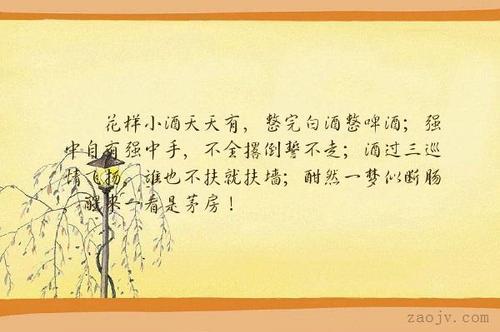 花样小酒天天有，整完白酒整啤酒；强
中自有强中手，不全撂倒誓不走；酒过三巡
情飞扬，谁也不扶就扶墙；酣然一梦似断肠
醒来一看是茅房！
zaojv.com